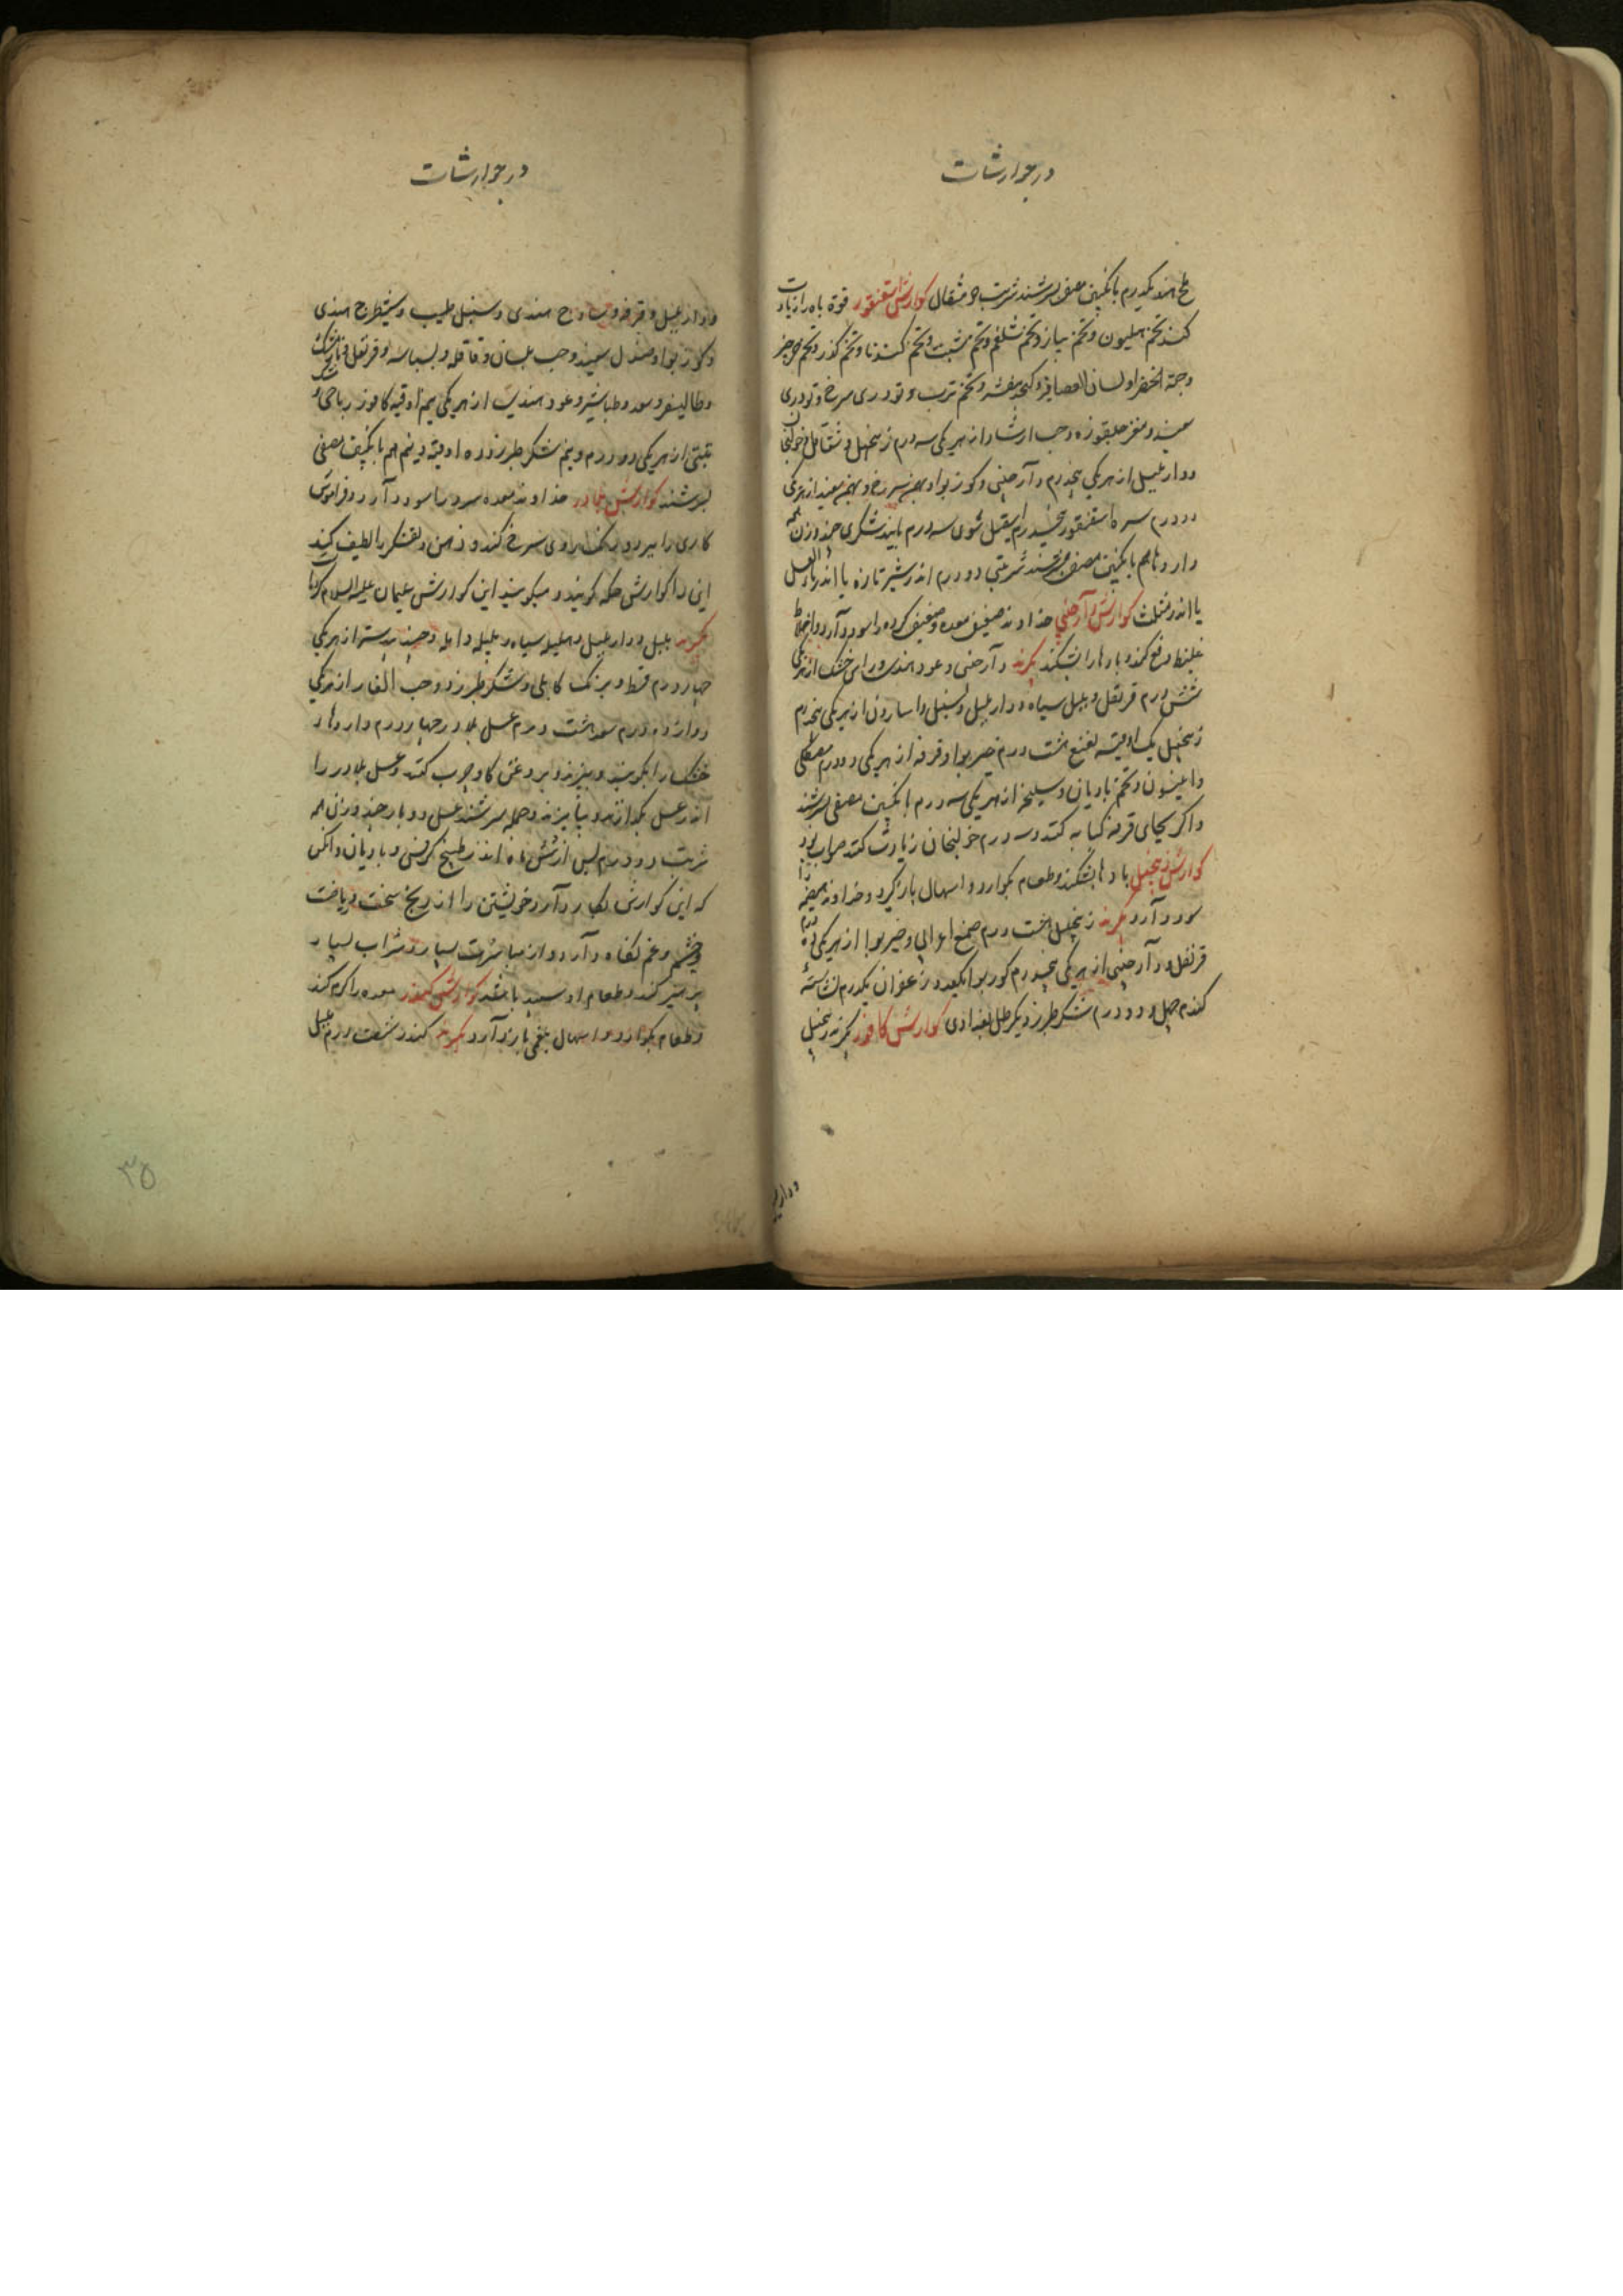 در جوارشات
ملح هندی یکدرم بانگبین مصفی بسرشند شربت دو مثقال کوارش سقنقور قوة باه را زیادت
کند تخم هلیون و تخم پیاز و تخم شلغم و تخم شبت و تخم کندنا و تخم گذر و تخم جرجیر
وحبة الخضرا ولسان العصافیر و کنجد مقشر و تخم ترب و تودری سرخ و تودری
سپید و مغز جلغوزه وحب ارشاد از هر یکی سه درم زنجبیل و شقاقل و خولنجان
ودار بلبیل از هر یکی پنجدرم دارچینی و کوزبوا و بهمن سرخ و بهمن سپید از هر یکی
دودرم سره اسقنقور پنجدرم اسقیل مشوی سه درم پانید شکری چند وزن همه
داروها هم بانگبین مصفی بسرشند شربتی دودرم اندر شیر تازه یا اندر ماء العسل
یا اندر مثلث کوارش دارچینی خداوند ضعیف معده وضعیف کرده را سود دارد و اخلاط
غلیظ دفع کند و بادها را بشکند بگیرند دارچینی و عود هندی و راسن خشک از هر یکی
شش درم قرنفل و پلپل سیاه و دار پلپل وسنبل واسارون از هر یکی پنجدرم
زنجبیل یک اوقیه نعنع هشت درم خیربوا و قرفه از هر یکی دودرم مصطکی
وانیسون و تخم بادیان وسلیخه از هر یکی سه درم بانگبین مصفی بسرشند
واگر بجای قرفه کبابه کنند و سه درم خولنجان زیادت کنند صواب بود
کوارش زنجبیل بادها بشکند وطعام بگوارد و اسهال باز گیرد و خداوند هیضه را
سود دارد بگیرند زنجبیل هشت درم صمغ اعرابی و خیربوا از هر یکی ده درم
قرنفل و دارچینی از هر یکی پنجدرم کوزبوا یکعدد زعفران یکدرم نشاسته
گندم چهل و دودرم شکر طبرزد یکرطل بغدادی کوارش کافور بگیرند زنجبیل
ودار پلپل
در جوارشات
ودار پلپل و قرفه وساذج هندی وسنبل طیب وشیطرج هندی
وکوزبوا و صندل سپید وحب بلسان وقاقله و بسباسه و قرنفل و نارمشک
وطالیسفر و سعد وطباشیر وعود هندی از هر یکی نیم اوقیه کافور رباحی و مشک
تبتی از هر یکی دودرم ونیم شکر طبرزد ده اوقیه ونیم هم بانگبین مصفی
بسرشند کوارش بلادر خداوند معده سرد را سود دارد و فراموش
کاری را ببرد و رنگ روی سرخ کند و ذهن و تفکر را لطیف کند
این را کوارش حکه گویند و میگویند این کوارش سلیمان علیه السلام کرده است
بگیرند پلپل و دار پلپل و هلیله سیاه و بلیله و امله و جندبیدستر از هر یکی
چهار درم قسط و برنگ کابلی و شکر طبرزد و حب الغار از هر یکی
دوازده درم سعد هشت درم عسل بلادر چهار درم داروهاء
خشک را بکوبند و ببیزند و بروغن گاو چرب کنند و عسل بلادر را
اندر عسل بگدازند و بیامیزند و جمله بسرشند عسل دو بار چند وزن همه
شربت دودرم پس از شش ماه اندر طبیخ کرفس و بادیان وانکس
که این کوارش بکار دارد خویشتن را از رنج سخت و ریاضت
وخشم وغم نگاه دارد و از مباشرت بسیار و شراب بسیار
پرهیز کند وطعام او سپید با باشد کوارش کندر معده را گرم کند
وطعام بگوارد و اسهال بلغمی باز دارد بگیرند کندر شصت درم پلپل
۳۵